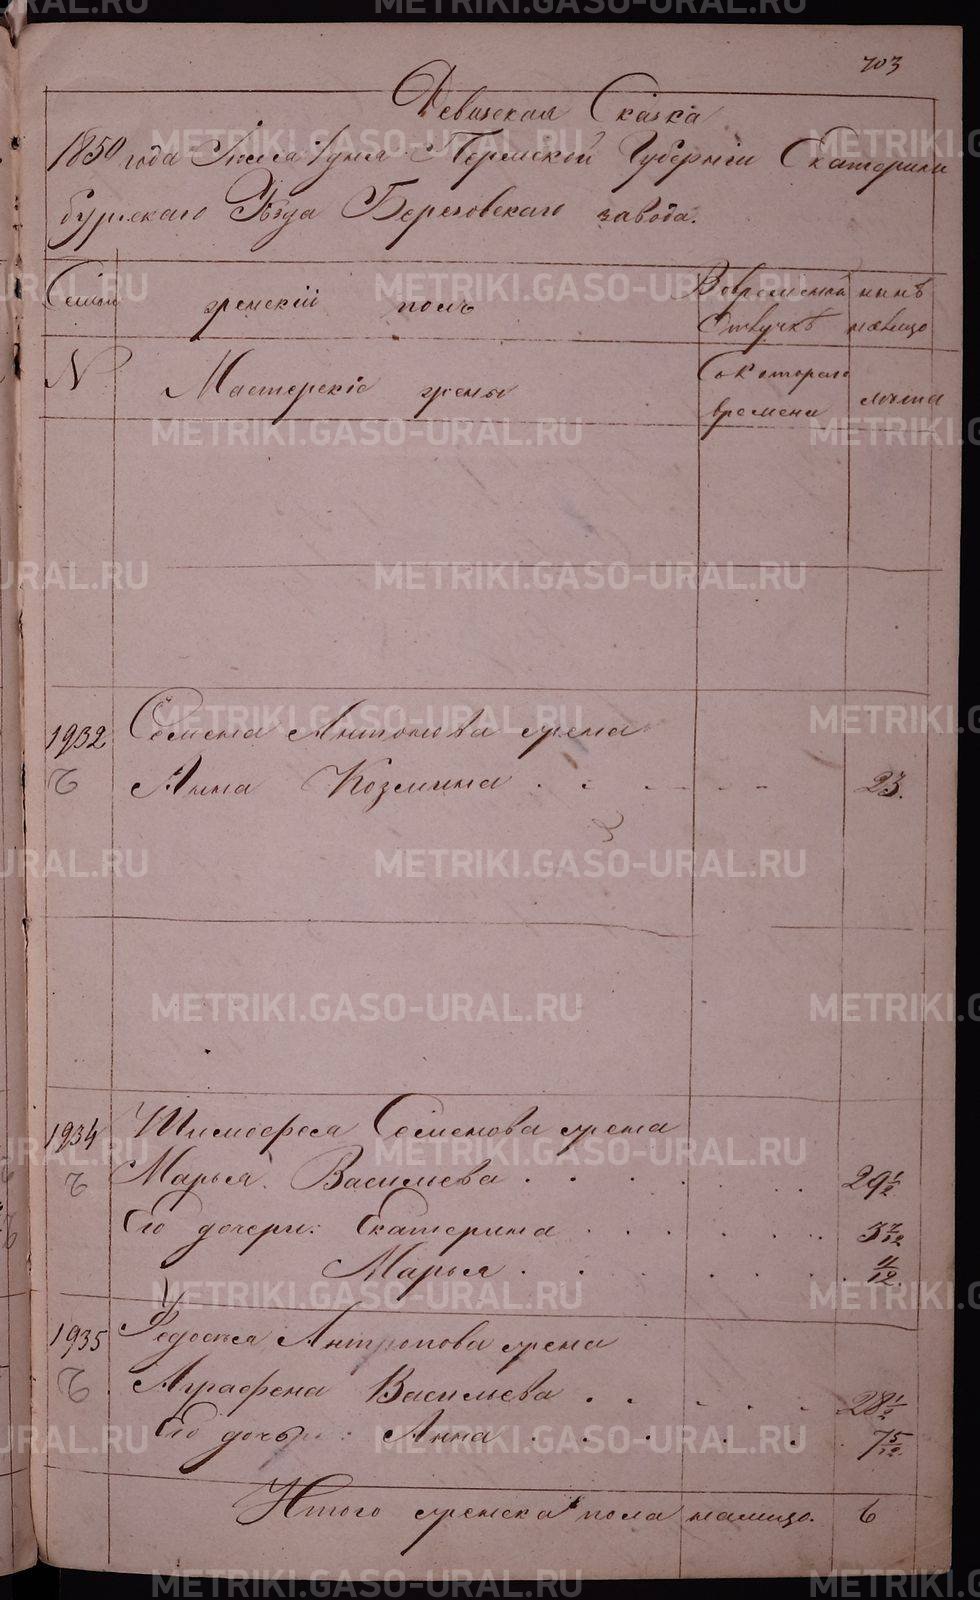 703
Ревизская Сказка
1850 года Июня дня Пермской Губернии Екатерин
бургскаго Уезда Березовскаго завода.
Семьи женский полъ Во временной отлучкѣ ныне налицо
N Мастерские жены Съ котораго времени лѣта
1932 Семена Антонова жена
Анна Козмина . . . . . 23.
1934 Тимофея Семенова жена
Марья Василиева . . . . . . 29 1/2
Его дочери: Екатерина . . . . . . 3 7/12
Марья . . . . . . 11/12.
1935 Федосея Антропова жена
Аграфена Васильева . . . . . 28 1/2
Его дочь: Анна . . . . . . 7 5/12
Итого женска пола налицо. 6
METRIKI.GASO-URAL.RU